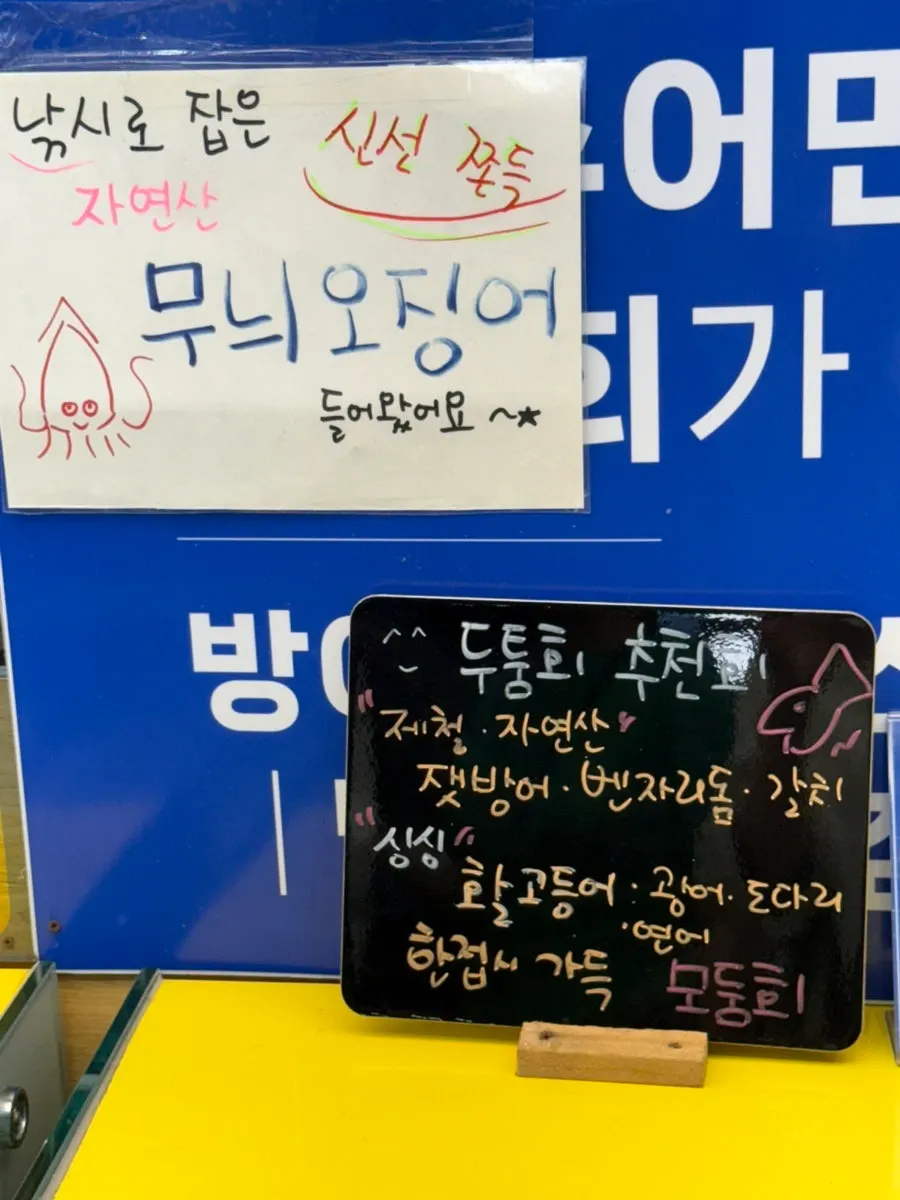 낚시로 잡은
신선 쫀득
자연산
무늬오징어
들어왔어요 ~★
어만
회가
방어
^^ 두툼회 추천회
"제철·자연산"
잿방어·벤자리돔·갈치
"싱싱"
활고등어·광어·도다리
·연어
한접시 가득 모둠회